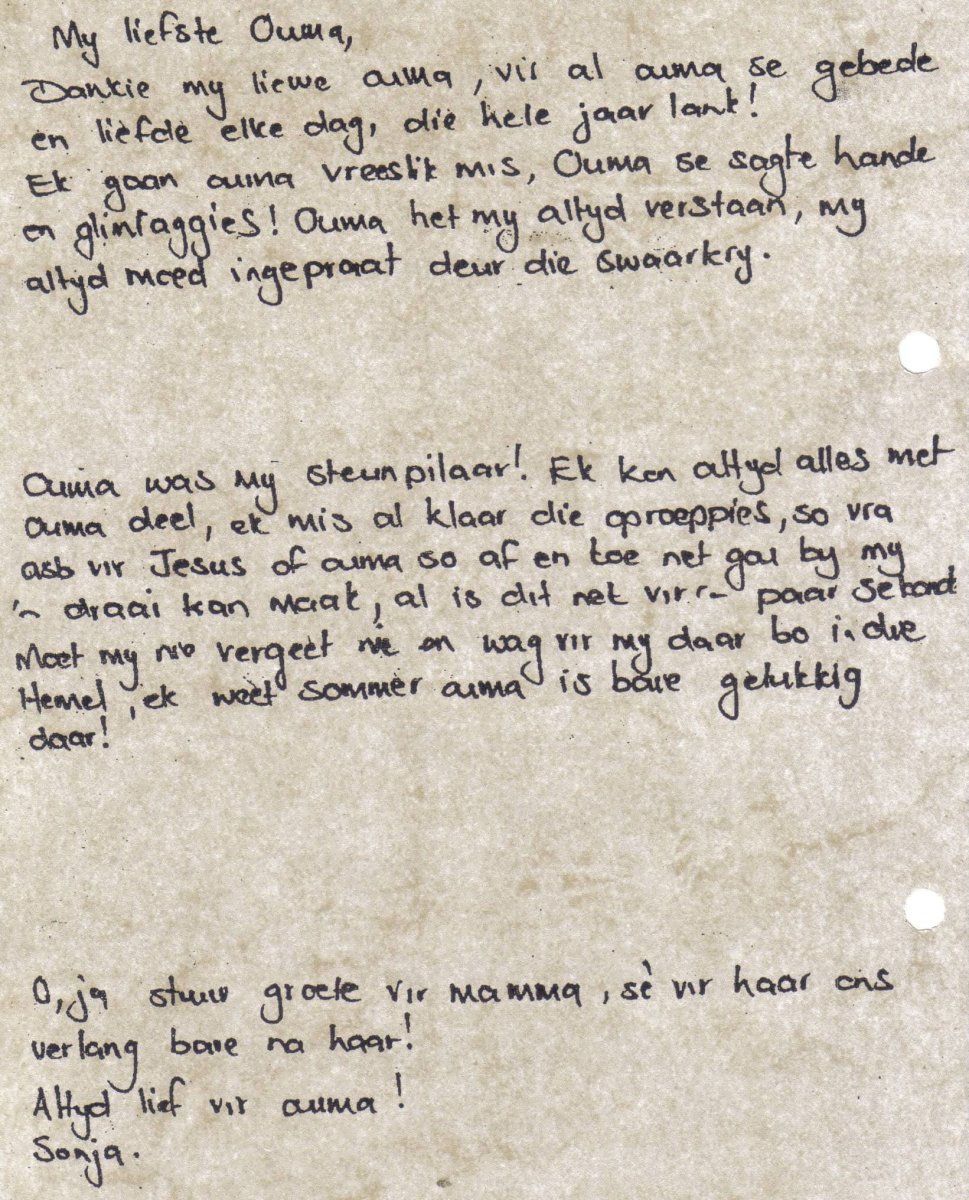 My liefste Ouma,
Dankie my liewe ouma, vir al ouma se gebede
en liefde elke dag, die hele jaar lank!
Ek gaan ouma vreeslik mis, Ouma se sagte hande
en glimlaggies! Ouma het my altyd verstaan, my
altyd moed ingepraat deur die swaarkry.
Ouma was my steunpilaar! Ek kon altyd alles met
ouma deel, ek mis al klaar die oproeppies, so vra
asb vir Jesus of ouma so af en toe net gou by my
'n draai kan maak, al is dit net vir 'n paar sekond
Moet my nie vergeet nie en wag vir my daar bo in die
Hemel, ek weet sommer ouma is baie gelukkig
daar!
O, ja stuur groete vir mamma, sê vir haar ons
verlang baie na haar!
Altyd lief vir ouma!
Sonja.